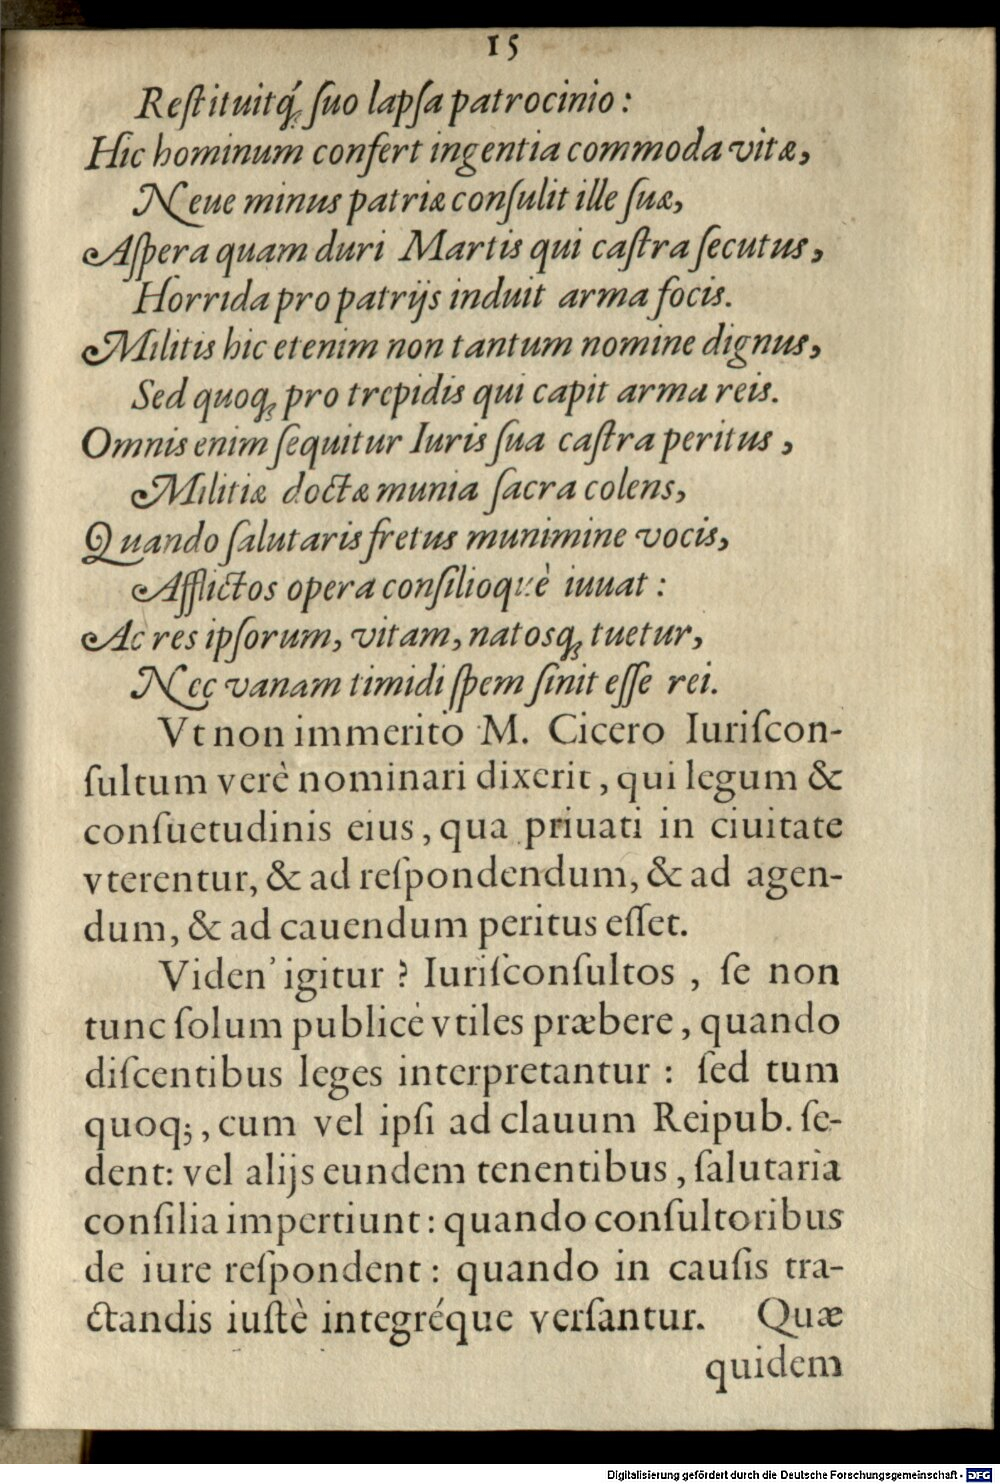 15
Reſtituitq́; ſuo lapſa patrocinio:
Hic hominum confert ingentia commoda vitæ,
Neue minus patriæ conſulit ille ſuæ,
Aſpera quam duri Martis qui caſtra ſecutus,
Horrida pro patrijs induit arma focis.
Militis hic etenim non tantum nomine dignus,
Sed quoq; pro trepidis qui capit arma reis.
Omnis enim ſequitur Iuris ſua caſtra peritus,
Militiæ doctæ munia ſacra colens,
Quando ſalutaris fretus munimine vocis,
Afflictos opera conſilioquè iuuat:
Ac res ipſorum, vitam, natosq; tuetur,
Nec vanam timidi ſpem ſinit eſſe rei.
Vt non immerito M. Cicero Iuriſcon-
ſultum verè nominari dixerit, qui legum &
conſuetudinis eius, qua priuati in ciuitate
vterentur, & ad reſpondendum, & ad agen-
dum, & ad cauendum peritus eſſet.
Viden' igitur? Iuriſconſultos, ſe non
tunc ſolum publicè vtiles præbere, quando
diſcentibus leges interpretantur: ſed tum
quoq;, cum vel ipſi ad clauum Reipub. ſe-
dent: vel alijs eundem tenentibus, ſalutaria
conſilia impertiunt: quando conſultoribus
de iure reſpondent: quando in cauſis tra-
ctandis iuſtè integréque verſantur. Quæ
quidem
Digitalisierung gefördert durch die Deutsche Forschungsgemeinschaft - DFG